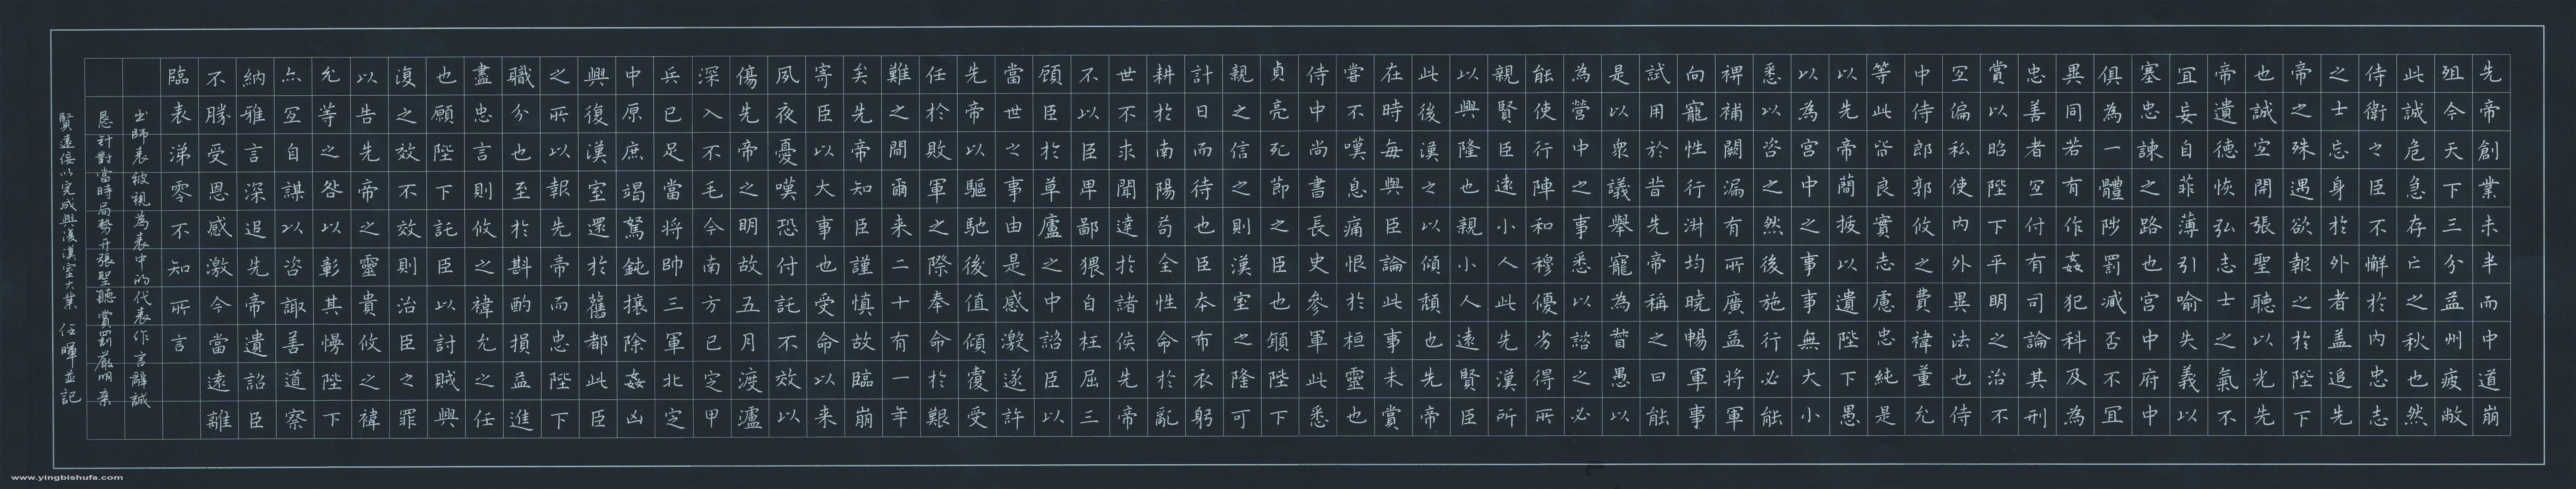 先帝創業未半而中道崩
殂今天下三分益州疲敝
此誠危急存亡之秋也然
侍衛之臣不懈於內忠志
之士忘身於外者盖追先
帝之殊遇欲報之於陛下
也誠宜開張聖聽以光先
帝遺德恢弘志士之氣不
宜妄自菲薄引喻失義以
塞忠諫之路也宫中府中
俱為一體陟罰臧否不宜
異同若有作姦犯科及為
忠善者宜付有司論其刑
賞以昭陛下平明之治不
宜偏私使內外異法也侍
中侍郎郭攸之費禕董允
等此皆良實志慮忠純是
以先帝蕳拔以遺陛下愚
以為宮中之事事無大小
悉以咨之然後施行必能
裨補闕漏有所廣益將軍
向寵性行淑均曉暢軍事
試用於昔先帝稱之曰能
是以衆議舉寵為督愚以
為營中之事悉以諮之必
能使行陣和穆優劣得所
親賢臣遠小人此先漢所
以興隆也親小人遠賢臣
此後漢之以傾頹也先帝
在時每與臣論此事未賞
嘗不嘆息痛恨於桓靈也
侍中尚書長史參軍此悉
貞亮死節之臣也願陛下
親之信之則漢室之隆可
計日而待也臣本布衣躬
耕於南陽苟全性命於亂
世不求聞達於諸侯先帝
不以臣卑鄙猥自枉屈三
顧臣於草廬之中諮臣以
當世之事由是感激遂許
先帝以驅馳後值傾覆受
任於敗軍之際奉命於艱
難之間爾来二十有一年
矣先帝知臣謹慎故臨崩
寄臣以大事也受命以来
夙夜憂嘆恐付託不效以
傷先帝之明故五月渡瀘
深入不毛今南方已定甲
兵已足當將帥三軍北定
中原庶竭駑鈍攘除姦凶
興復漢室還於舊都此臣
之所以報先帝而忠陛下
職分也至於斟酌損益進
盡忠言則攸之禕允之任
也願陛下託臣以討賊興
復之效不效則治臣之罪
以告先帝之靈貴攸之禕
允等之咎以彰其慢陛下
亦宜自謀以咨諏善道察
納雅言深追先帝遺詔臣
不勝受恩感激今當遠離
臨表涕零不知所言
出師表被視為表中的代表作言辭誠
恳针對當時局勢开張聖聽賞罰嚴明亲
賢遠佞以完成興復漢室大業 任暉並記
www.yingbishufa.com